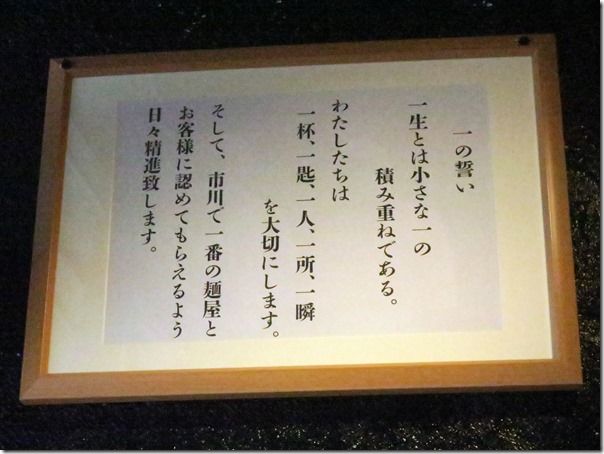 一の誓い
一生とは小さな一の
積み重ねである。
わたしたちは
一杯、一匙、一人、一所、一瞬
を大切にします。
そして、市川で一番の麺屋と
お客様に認めてもらえるよう
日々精進致します。